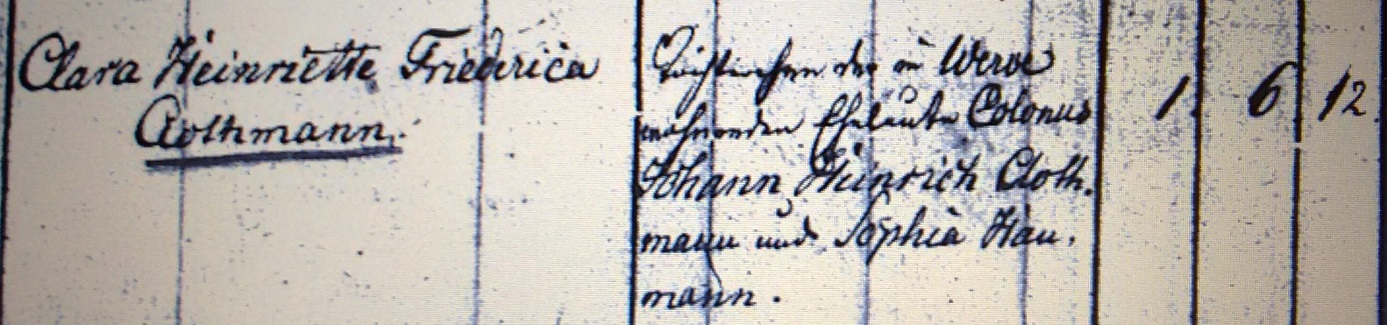 Clara Heinriette Friederica
Clothmann.
Töchterchen der in Werve
wohnenden Eheleute Colonus
Johann Heinrich Cloth.
mann und Sophia Hau.
mann.
1. 6 12.